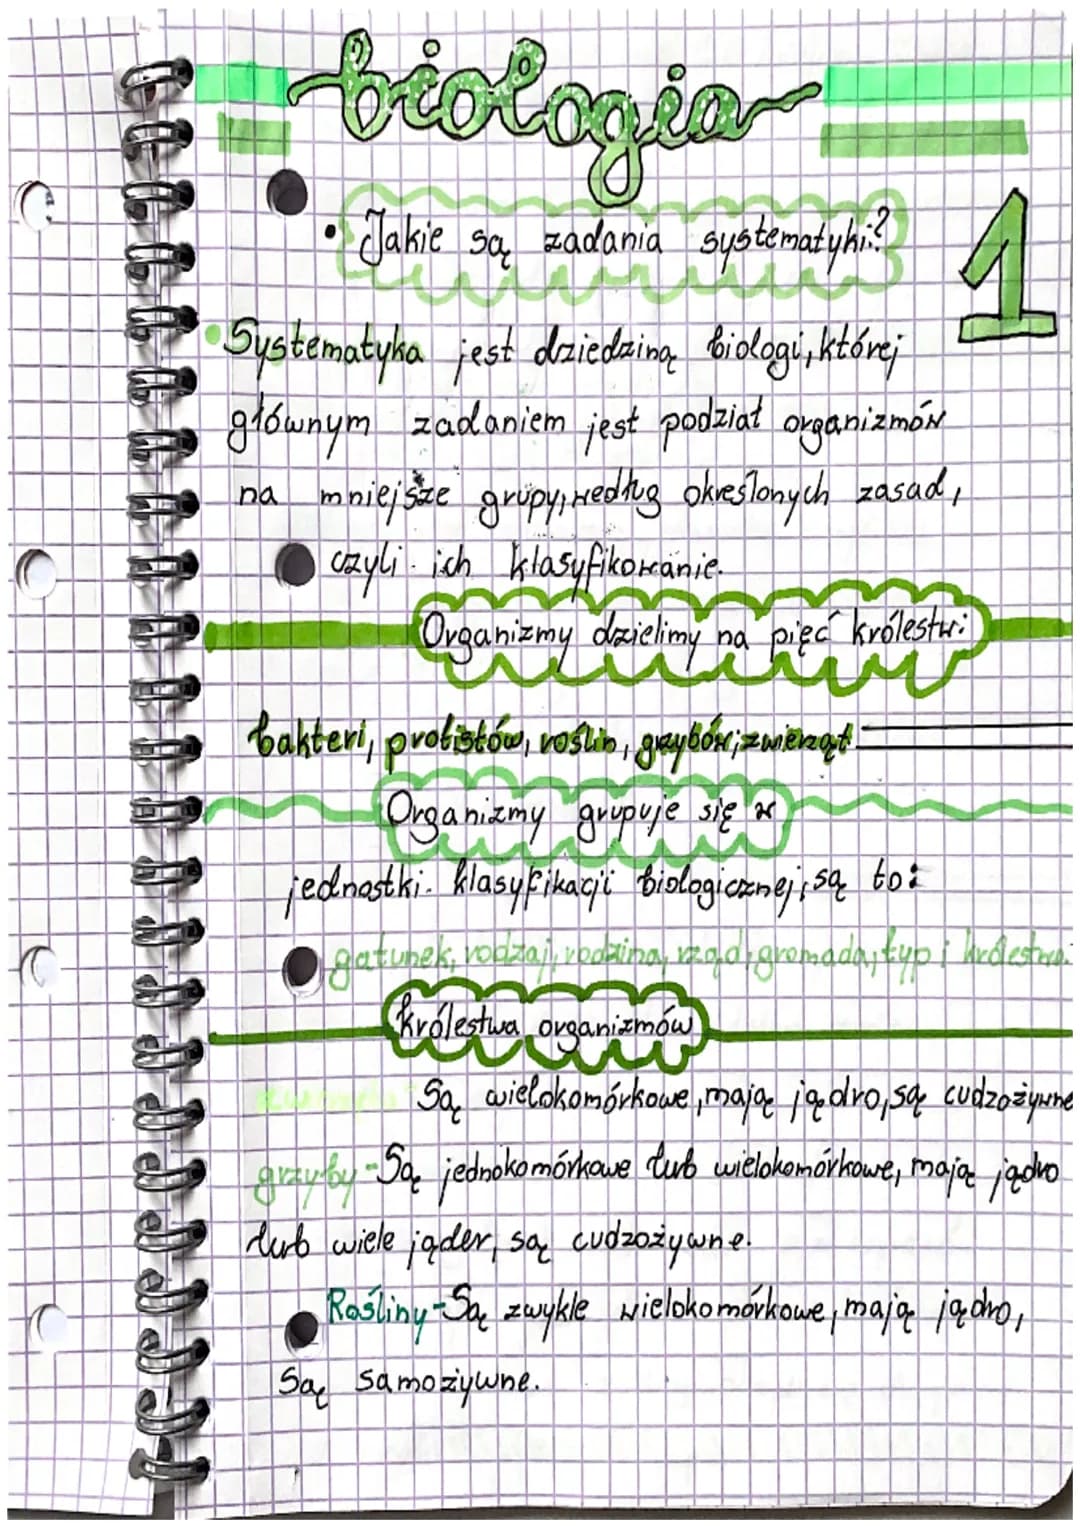 biologia
1
• Jakie są zadania systematyki?
• Systematyka jest dziedziną biologi, której
głównym zadaniem jest podział organizmów
na mniejsze grupy, według określonych zasad,
czyli ich klasyfikowanie.
Organizmy dzielimy na pięć królestw:
bakteri, protistów, roślin, grzybów, zwierząt.
Organizmy grupuje się w
jednostki klasyfikacji biologicznej, są to:
gatunek, rodzaj, rodzina, rząd, gromada, typ i królestwo.
królestwa organizmów
zwierzęta - Są wielokomórkowe, mają jądro, są cudzożywne
grzyby - Są jednokomórkowe lub wielokomórkowe, mają jądro
lub wiele jąder, są cudzożywne.
Rośliny - Są zwykle wielokomórkowe, mają jądro,
Są samożywne.